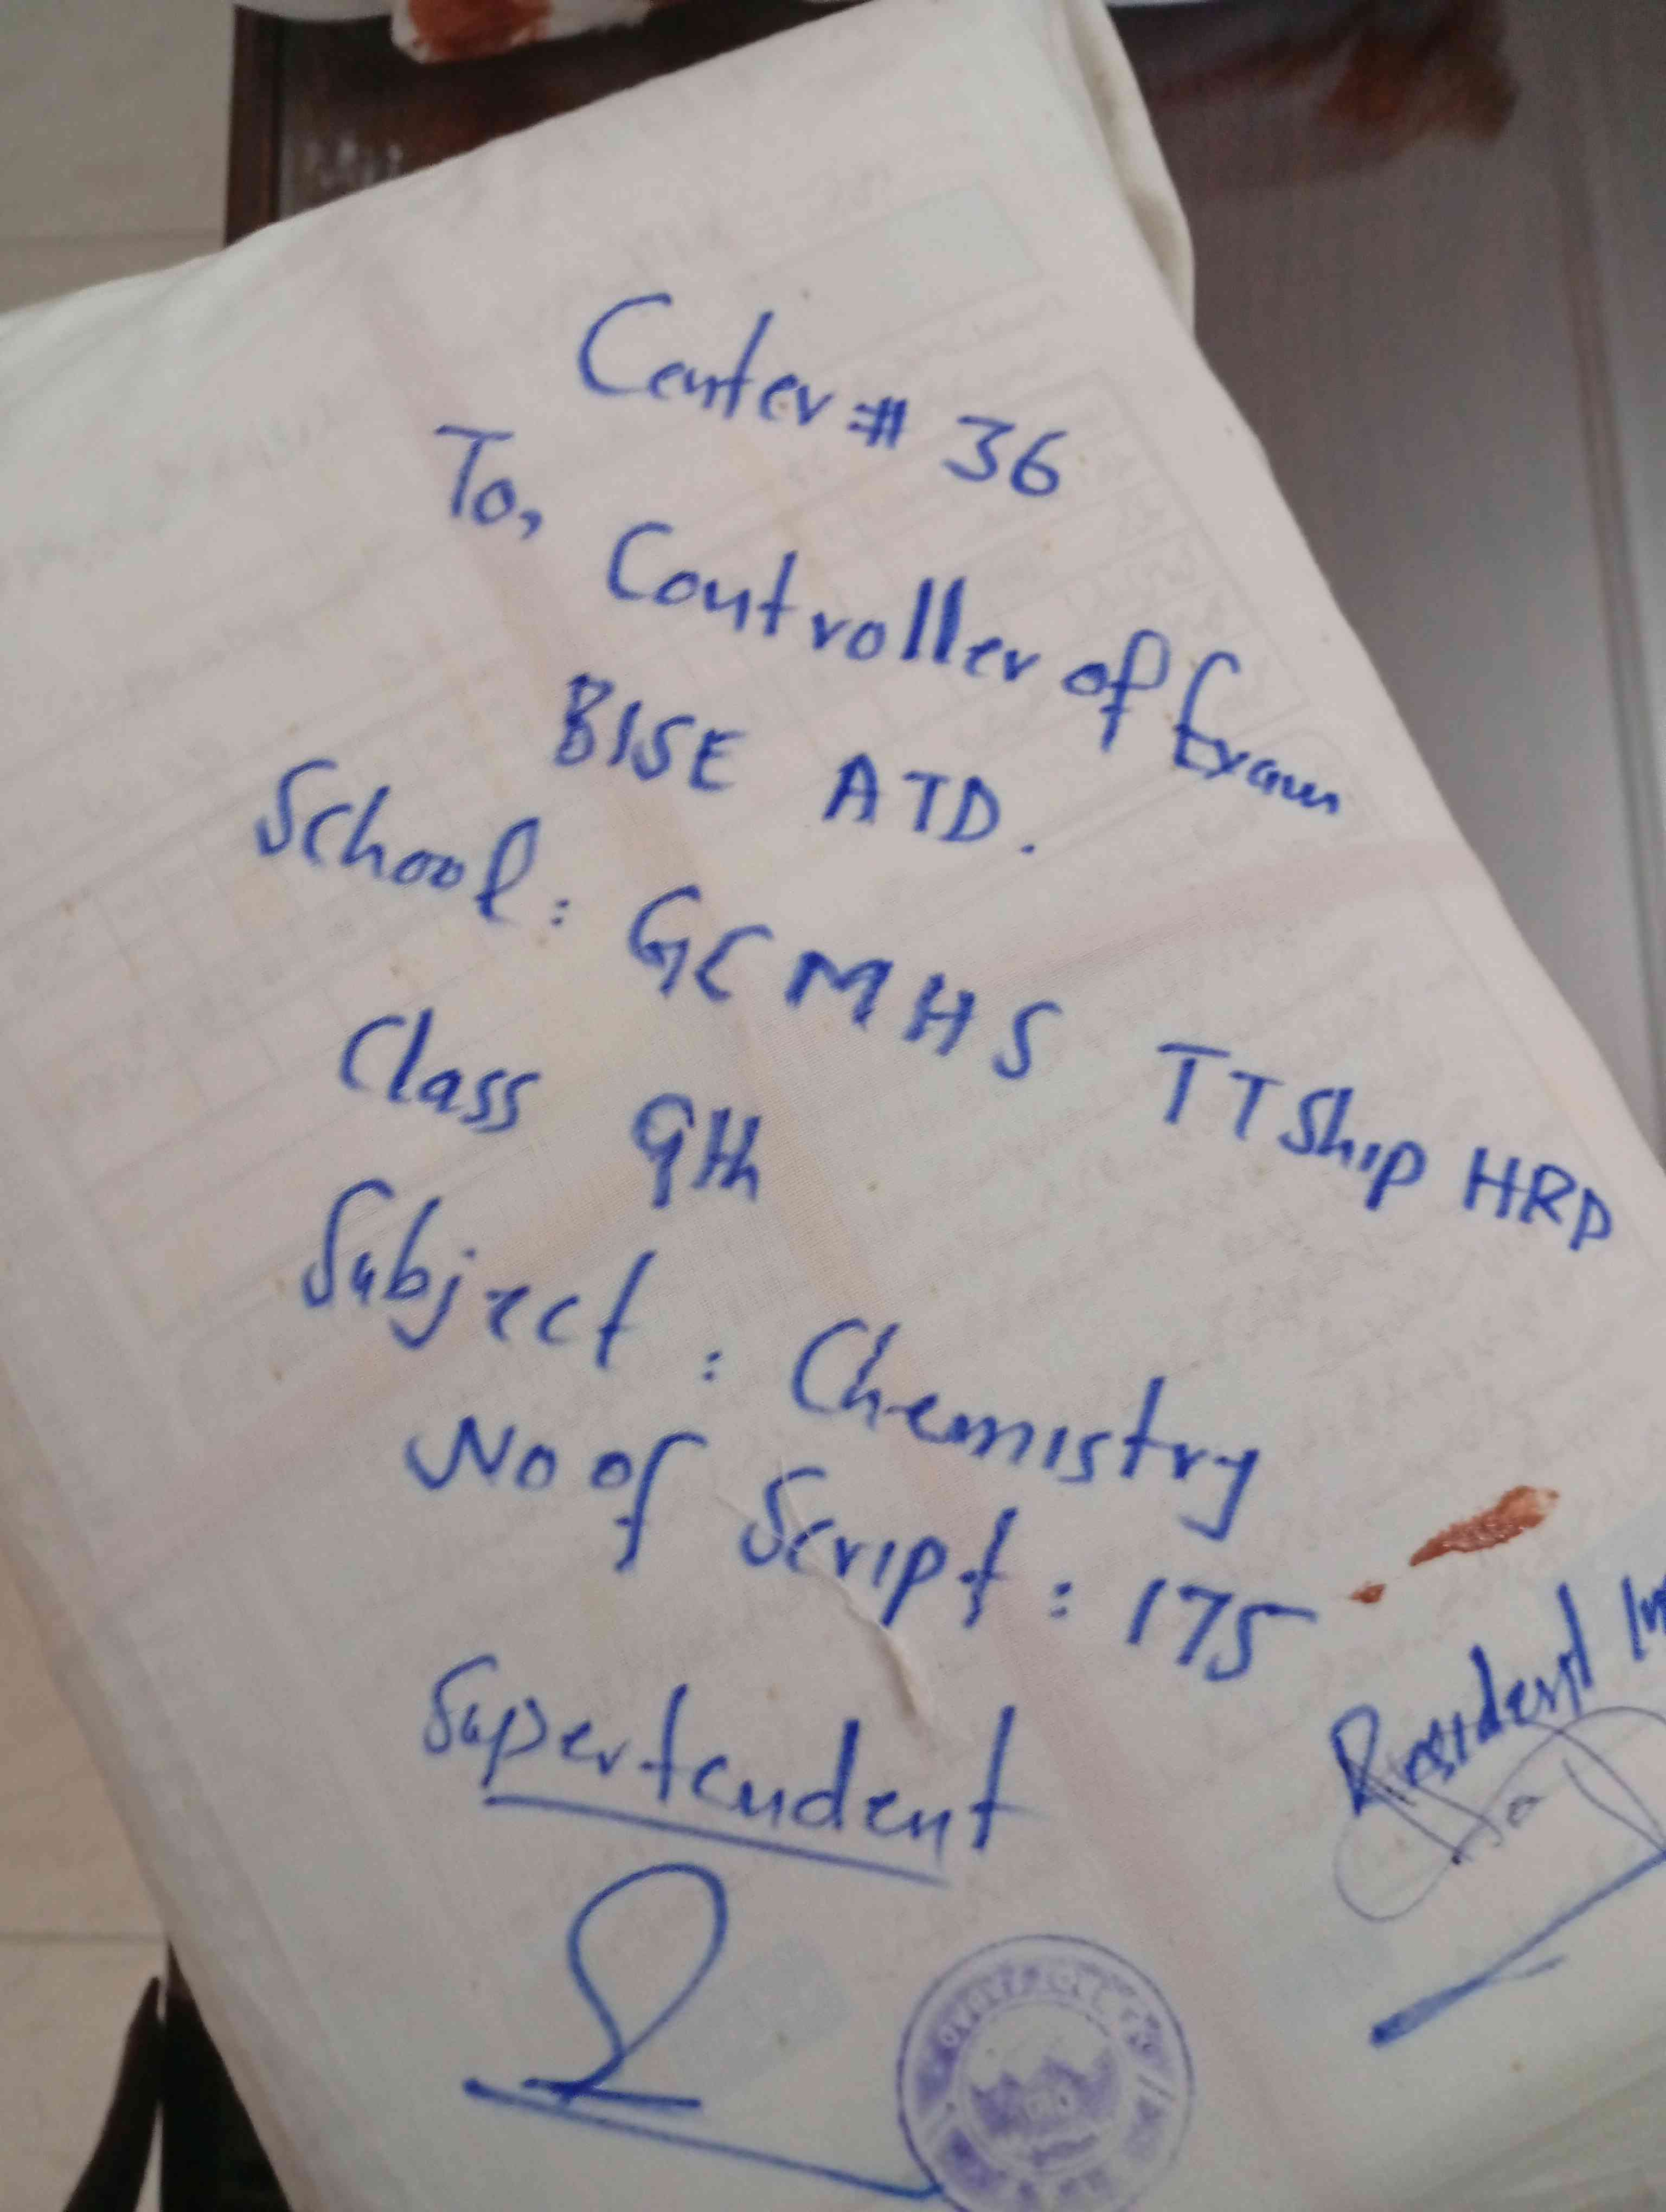 Center # 36
To,
Controller of Exam
BISE ATD.
School: GCMHS TTShip HRP
Class 9th
Subject: Chemistry
No of Script: 175
Supertendent
Resident